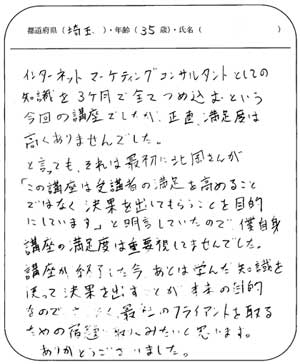 都道府県(埼玉)・年齢(35歳)・氏名( )
インターネットマーケティングコンサルタントとしての
知識を3ヶ月で全てつめ込むという
今回の講座でしたが、正直、満足度は
高くありませんでした。
と言っても、それは最初に北岡さんが
「この講座は受講者の満足を高めること
ではなく決果を出してもらうことを目的
にしています」と明言していたので、僕自身
講座の満足度は重要視してませんでした。
講座が終了した今、あとは学んだ知識を
使って決果を出すことが本来の目的
なので のクライアントを取る
ための 組みたいと思います。
ありがとうございました。